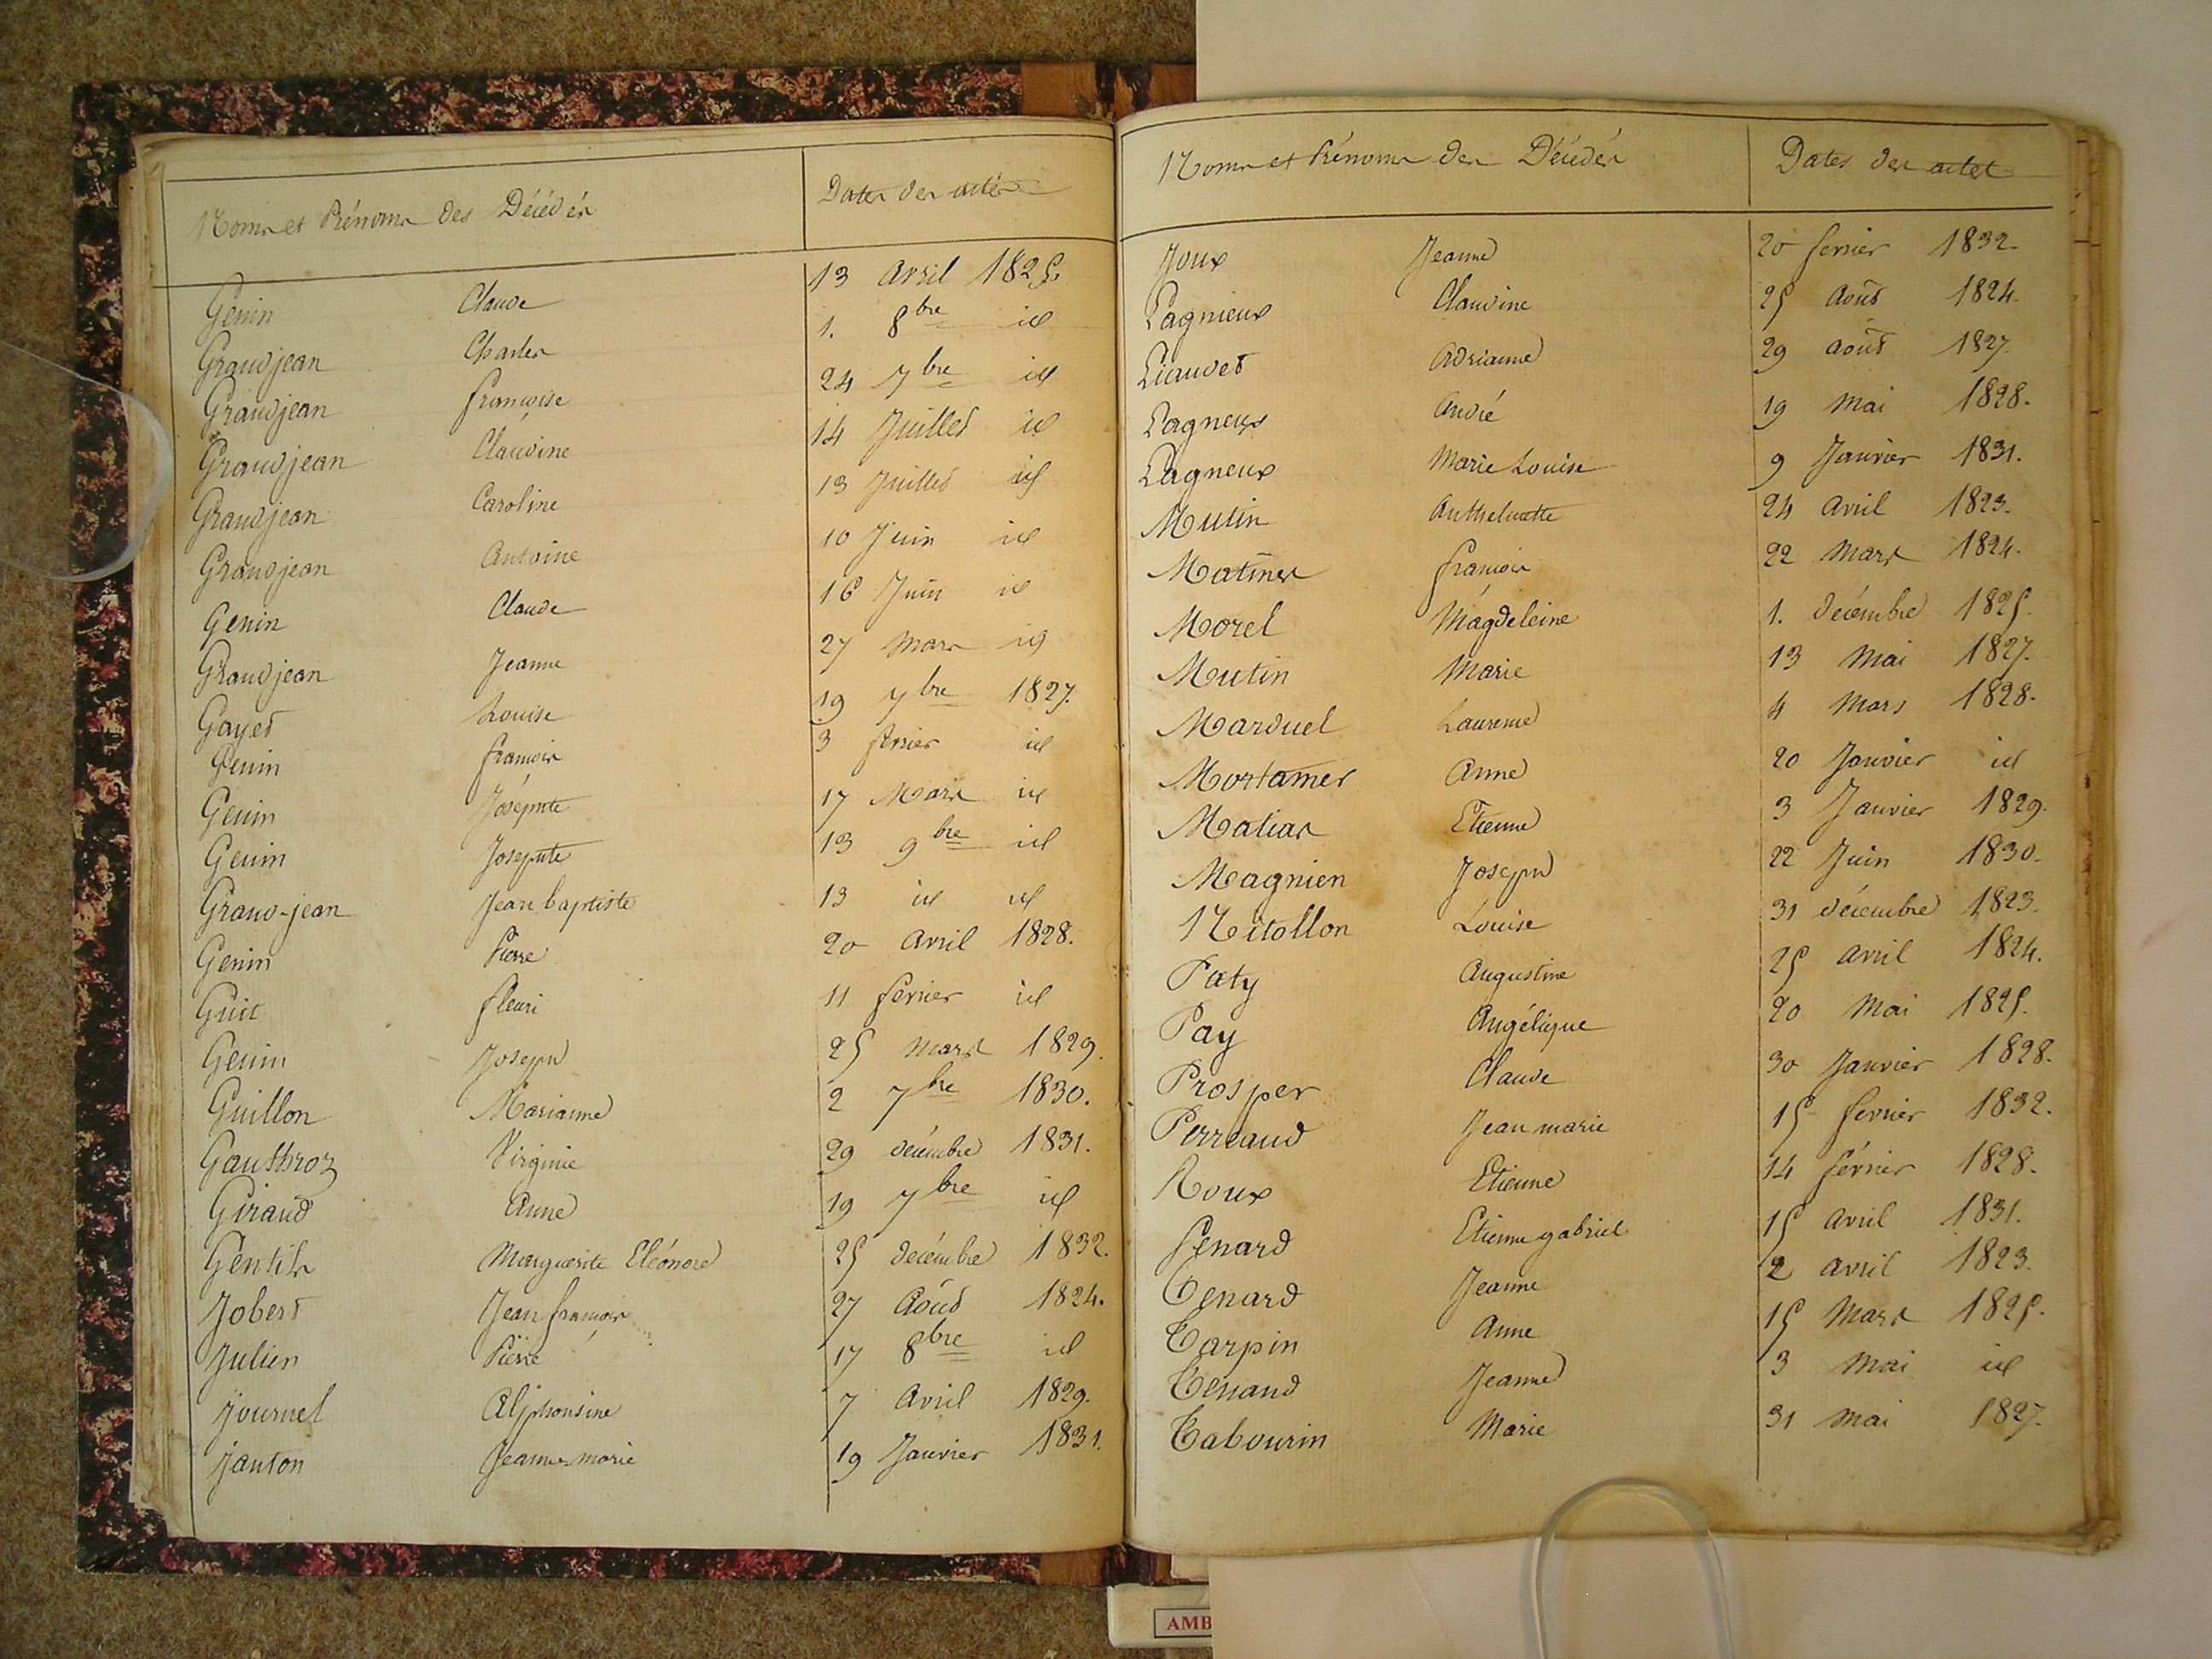 Noms et Prénoms des Décédés Dates des actes
Genin Claude 13 Avril 1825
Grandjean Charles 1. 8bre id
Grandjean françoise 24 7bre id
Grandjean Claudine 14 Juillet id
Grandjean Caroline 13 Juillet id
Grandjean Antoine 10 Juin id
Genin Claude 16 Juin id
Grandjean Jeanne 27 Mars id
Gayet Louise 19 7bre 1827.
Genin françois 3 fevrier id
Genin Joséphte 17 Mars id
Genin Josephte 13 9bre id
Grand-jean Jean baptiste 13 id id
Genin Pierre 20 Avril 1828.
Guit fleuri 11 fevrier id
Genin Joseph 25 mars 1829.
Guillon Marianne 2 7bre 1830.
Gauthroz Virginie 29 décembre 1831.
Giraud Anne 19 7bre id
Gentils Marguerite Eléonore 25 decémbre 1832.
Jobert Jean françois 27 Août 1824.
Julien Pierre 17 8bre id
Journel Alphonsine 7 Avril 1829.
Janton Jeanne marie 19 Janvier 1831.
Noms et Prénoms des Décédés Dates des actes
Joux Jeanne 20 fevrier 1832.
Lagnieux Claudine 25 Août 1824.
Liaudet Adrianne 29 août 1827.
Lagneux André 19 Mai 1828.
Lagneux Marie Louise 9 Janvier 1831.
Mutin Anthelmette 24 avril 1823.
Matiner françois 22 Mars 1824.
Morel Magdeleine 1. décembre 1825.
Mutin Marie 13 Mai 1827.
Marduel Laurence 4 Mars 1828.
Mortamer Anne 20 Janvier id
Matias Etienne 3 Janvier 1829.
Magnien Joseph 22 Juin 1830.
Nitollon Louise 31 décembre 1823.
Paty Augustine 25 avril 1824.
Pay Angélique 20 Mai 1825.
Prosper Claude 30 Janvier 1828.
Perreaud Jean marie 15 fevrier 1832.
Roux Etienne 14 février 1828.
Senard Etienne gabriel 15 avril 1831.
Tenard Jeanne 2 avril 1823.
Tarpin Anne 15 Mars 1825.
Tenand Jeanne 3 Mai id
Tabourin Marie 31 Mai 1827.
AMB